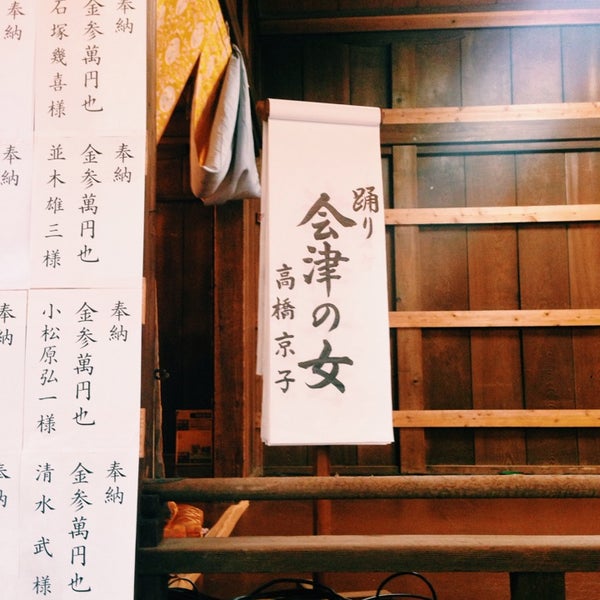 奉納
金参萬円也
石塚幾喜様
奉納
奉納
金参萬円也
並木雄三様
奉納
奉納
金参萬円也
小松原弘一様
奉納
奉納
金参萬円也
清水武様
奉納
踊り
会津の女
高橋京子